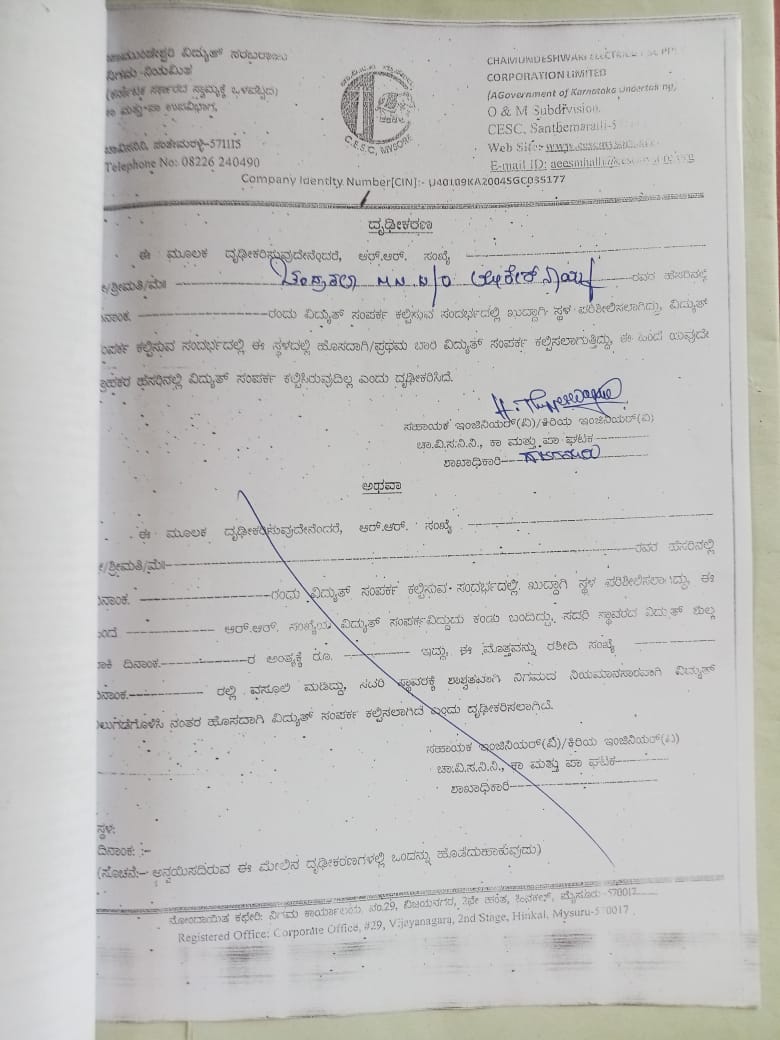 ಚಾಮುಂಡೇಶ್ವರಿ ವಿದ್ಯುತ್ ಸರಬರಾಜು
ನಿಗಮ ನಿಯಮಿತ
(ಕರ್ನಾಟಕ ಸರ್ಕಾರದ ಸ್ವಾಮ್ಯಕ್ಕೆ ಒಳಪಟ್ಟಿದೆ)
ಕಾ ಮತ್ತು ಪಾ ಉಪವಿಭಾಗ,
ಚಾವಿಸನಿನಿ, ಸಂತೇಮರಳ್ಳಿ-571115
Telephone No: 08226 240490
C.E.S.C, MYSORE
CHAMUNDESHWARI ELECTRICITY
CORPORATION LIMITED
(AGovernment of Karnataka Undertaking)
O & M Subdivision
CESC, Santhemaralli-5
Web Site:-
E-mail ID:
Company Identity Number[CIN]:- U40109KA2004SGC035177
ದೃಢೀಕರಣ
ಈ ಮೂಲಕ ದೃಢೀಕರಿಸುವುದೇನೆಂದರೆ, ಆರ್.ಆರ್. ಸಂಖ್ಯೆ
/ಶ್ರೀಮತಿ/ಮೆ: ಚಂದ್ರಕಲಾ M.N. W/O ರವರ ಹೆಸರಿನಲ್ಲಿ
ದಿನಾಂಕ ರಂದು ವಿದ್ಯುತ್ ಸಂಪರ್ಕ ಕಲ್ಪಿಸುವ ಸಂದರ್ಭದಲ್ಲಿ ಖುದ್ದಾಗಿ ಸ್ಥಳ ಪರಿಶೀಲಿಸಲಾಗಿದ್ದು, ವಿದ್ಯುತ್
ಸಂಪರ್ಕ ಕಲ್ಪಿಸುವ ಸಂದರ್ಭದಲ್ಲಿ ಈ ಸ್ಥಳದಲ್ಲಿ ಹೊಸದಾಗಿ/ಪ್ರಥಮ ಬಾರಿ ವಿದ್ಯುತ್ ಸಂಪರ್ಕ ಕಲ್ಪಿಸಲಾಗುತ್ತಿದ್ದು, ಈ ಹಿಂದೆ ಯಾವುದೇ
ಗ್ರಾಹಕರ ಹೆಸರಿನಲ್ಲಿ ವಿದ್ಯುತ್ ಸಂಪರ್ಕ ಕಲ್ಪಿಸಿರುವುದಿಲ್ಲ ಎಂದು ದೃಢೀಕರಿಸಿದೆ.
ಸಹಾಯಕ ಇಂಜಿನಿಯರ್(ವಿ)/ಕಿರಿಯ ಇಂಜಿನಿಯರ್(ವಿ)
ಚಾ.ವಿ.ಸ.ನಿ.ನಿ., ಕಾ ಮತ್ತು ಪಾ ಘಟಕ
ಶಾಖಾಧಿಕಾರಿ
ಅಥವಾ
ಈ ಮೂಲಕ ದೃಢೀಕರಿಸುವುದೇನೆಂದರೆ, ಆರ್.ಆರ್. ಸಂಖ್ಯೆ
/ಶ್ರೀಮತಿ/ಮೆ: ರವರ ಹೆಸರಿನಲ್ಲಿ
ದಿನಾಂಕ ರಂದು ವಿದ್ಯುತ್ ಸಂಪರ್ಕ ಕಲ್ಪಿಸುವ ಸಂದರ್ಭದಲ್ಲಿ ಖುದ್ದಾಗಿ ಸ್ಥಳ ಪರಿಶೀಲಿಸಲಾಗಿದ್ದು, ಈ
ಹಿಂದೆ ಆರ್.ಆರ್. ಸಂಖ್ಯೆಯ ವಿದ್ಯುತ್ ಸಂಪರ್ಕವಿದ್ದುದು ಕಂಡು ಬಂದಿದ್ದು, ಸದರಿ ಸ್ಥಾವರದ ವಿದ್ಯುತ್ ಶುಲ್ಕ
ಬಾಕಿ ದಿನಾಂಕ ರ ಅಂತ್ಯಕ್ಕೆ ರೂ. ಇದ್ದು, ಈ ಮೊತ್ತವನ್ನು ರಶೀದಿ ಸಂಖ್ಯೆ
ದಿನಾಂಕ ರಲ್ಲಿ ವಸೂಲಿ ಮಾಡಿದ್ದು, ಸದರಿ ಸ್ಥಾವರಕ್ಕೆ ಶಾಶ್ವತವಾಗಿ ನಿಗಮದ ನಿಯಮಾನಸಾರವಾಗಿ ವಿದ್ಯುತ್
ನಂತರ ಹೊಸದಾಗಿ ವಿದ್ಯುತ್ ಸಂಪರ್ಕ ಕಲ್ಪಿಸಲಾಗಿದೆ ಎಂದು ದೃಢೀಕರಿಸಲಾಗಿದೆ.
ಸಹಾಯಕ ಇಂಜಿನಿಯರ್(ವಿ)/ಕಿರಿಯ ಇಂಜಿನಿಯರ್(ವಿ)
ಚಾ.ವಿ.ಸ.ನಿ.ನಿ., ಕಾ ಮತ್ತು ಪಾ ಘಟಕ
ಶಾಖಾಧಿಕಾರಿ
ಸ್ಥಳ:
ದಿನಾಂಕ: :-
(ಸೂಚನೆ:- ಅನ್ವಯಿಸದಿರುವ ಈ ಮೇಲಿನ ದೃಢೀಕರಣಗಳಲ್ಲಿ ಒಂದನ್ನು ಹೊಡೆದುಹಾಕುವುದು)
ನೋಂದಾಯಿತ ಕಛೇರಿ: ನಿಗಮ ಕಾರ್ಯಾಲಯ, ನಂ.29, ವಿಜಯನಗರ, 2ನೇ ಹಂತ, ಹಿನಕಲ್, ಮೈಸೂರು-570017
Registered Office: Corporate Office, #29, Vijayanagara, 2nd Stage, Hinkal, Mysuru-570017